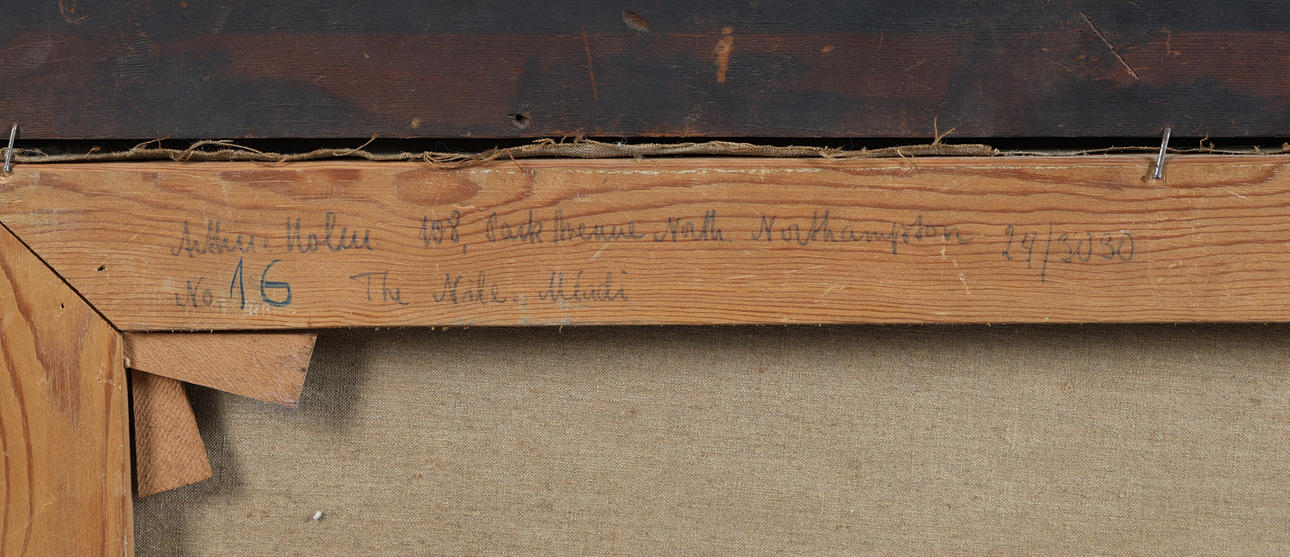 Arthur Holm 108, Park Avenue North Northampton 24/3030
No. 16 The Nile. Méadi